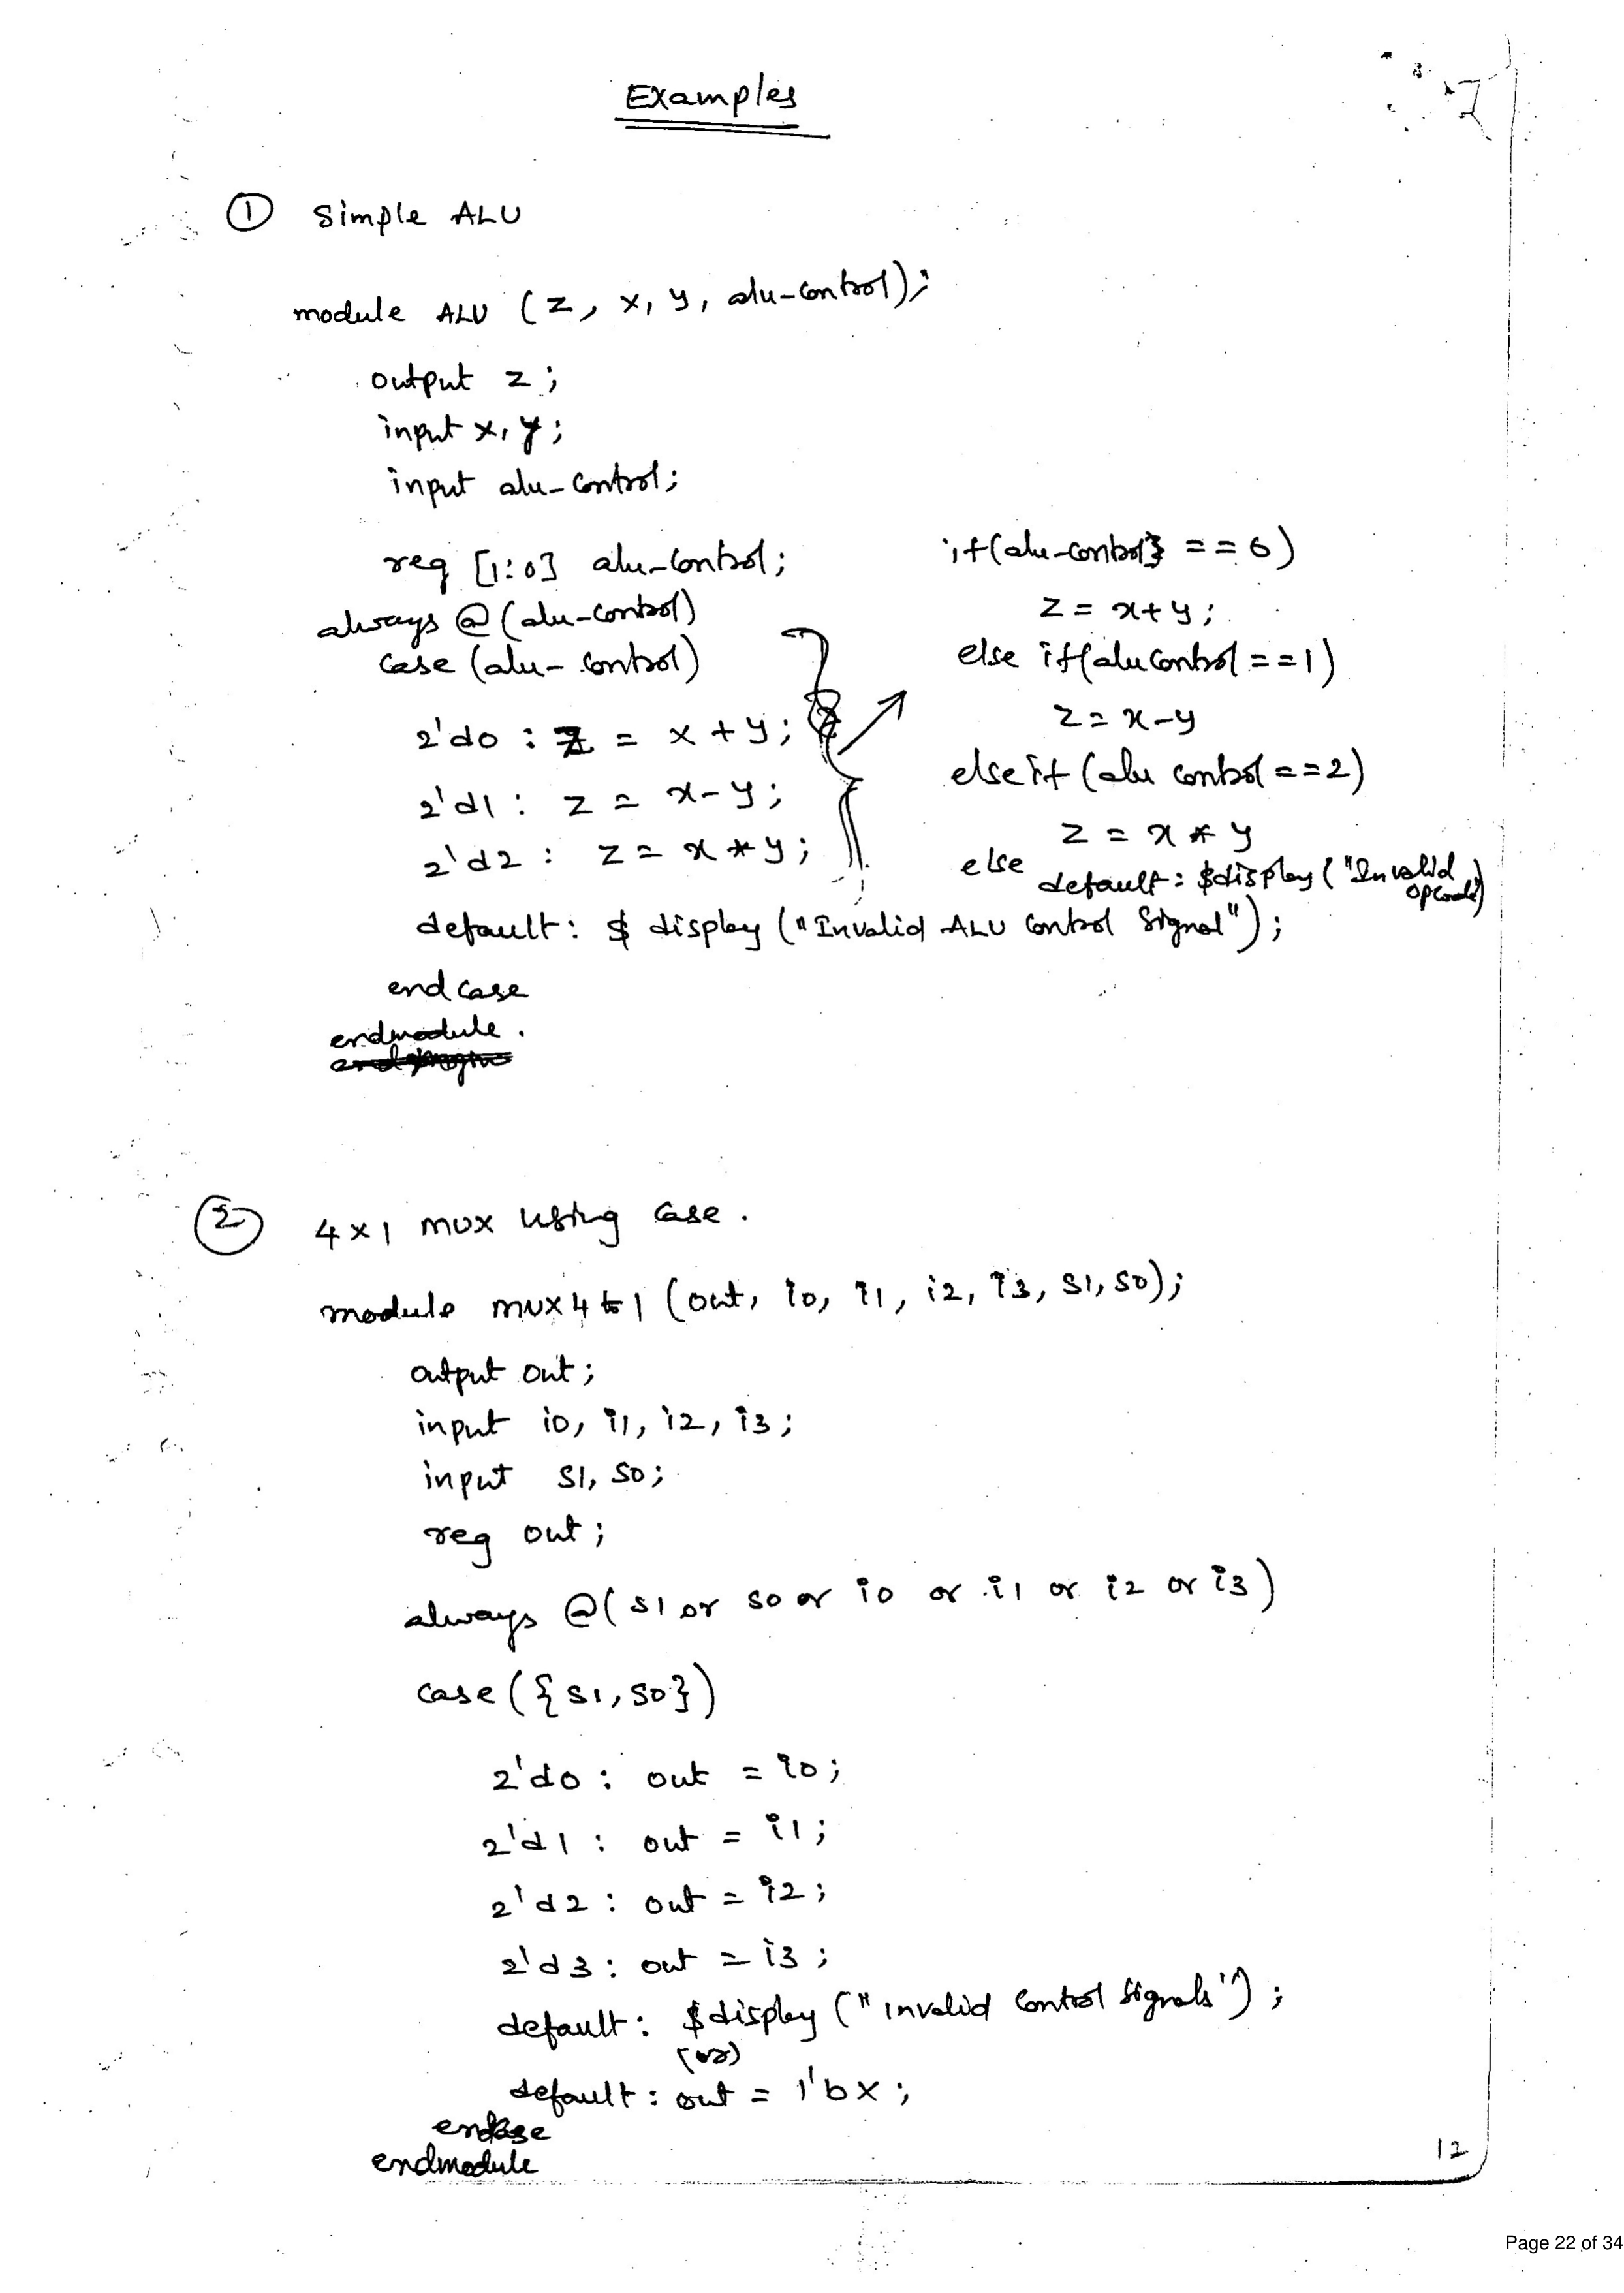 Examples
① Simple ALU
module ALU (z, x, y, alu-control);
output z;
input x, y;
input alu-control;
reg [1:0] alu-control;
always @(alu-control)
case (alu-control)
2'd0 : z = x + y;
2'd1 : z = x-y;
2'd2 : z = x * y;
default: $ display ("Invalid ALU control signal");
endcase
endmodule.
if(alu-control} == 0)
z = x+y;
else if(alu control ==1)
z = x-y
else if (alu control ==2)
z = x * y
else default: $display ("Invalid
opcode")
② 4x1 mux using case.
module mux4to1 (out, i0, i1, i2, i3, s1, s0);
output out;
input i0, i1, i2, i3;
input s1, s0;
reg out;
always @(s1 or s0 or i0 or i1 or i2 or i3)
case ({s1, s0})
2'd0 : out = i0;
2'd1 : out = i1;
2'd2 : out = i2;
2'd3 : out = i3;
default: $display ("invalid control signals");
(or)
default: out = 1'bx;
endcase
endmodule
12
Page 22 of 34